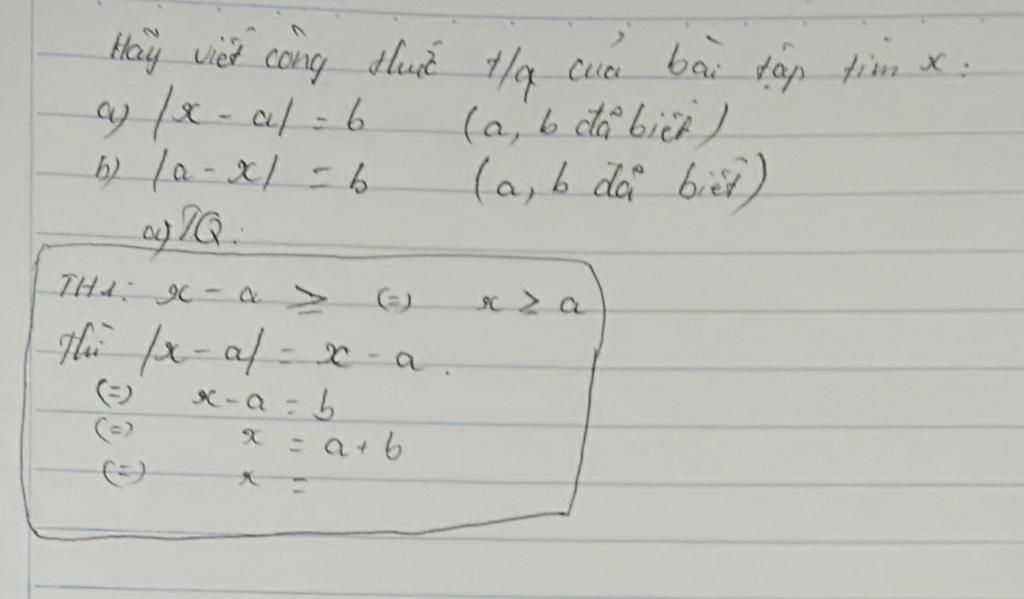 Hãy viết công thức t/q của bài tập tìm x:
a) |x - a| = b (a, b đã biết)
b) |a - x| = b (a, b đã biết)
a) TQ:
TH1: x - a ≥ (=) x ≥ a
Thì |x - a| = x - a.
(=) x - a = b
(=) x = a + b
(=) x =